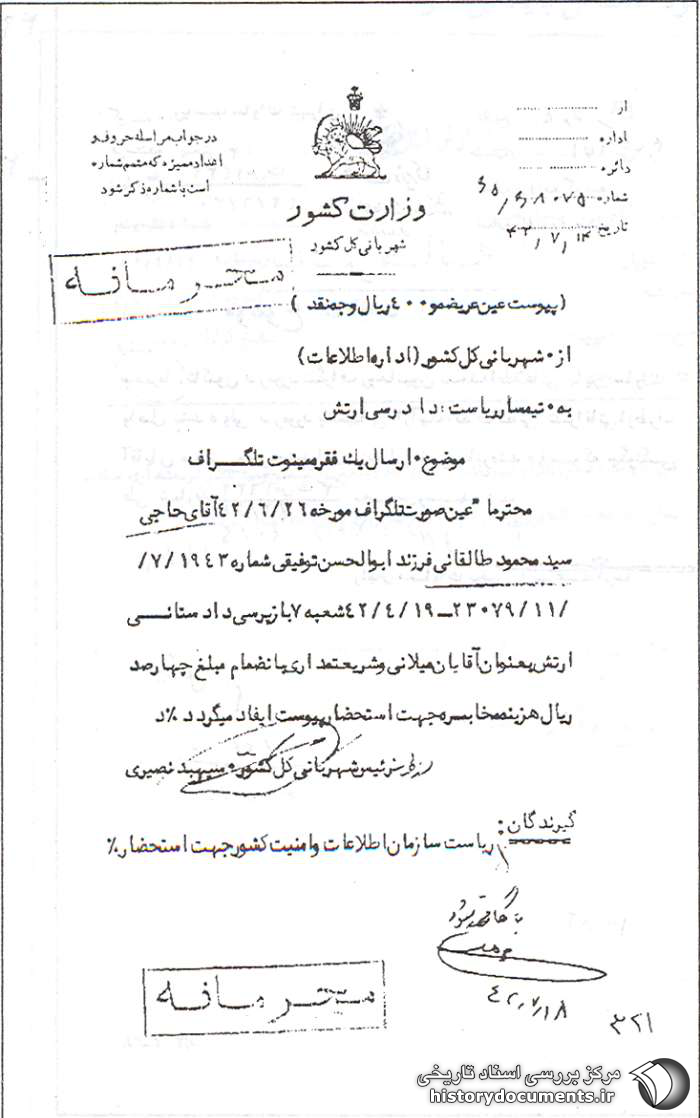 در جواب مراسله حروف و
اعداد ممیزه که متمم شماره
است با شماره ذکر شود
وزارت کشور
شهربانی کل کشور
از
اداره
دائره
شماره
تاریخ ۴۲/۷/۱۴
محرمانه
(پیوست عین عریضه و ۴۰۰ ریال وجه نقد )
از۰ شهربانی کل کشور (اداره اطلاعات)
به۰ تیمسار ریاست: دادرسی ارتش
موضوع۰ ارسال یك فقره مینوت تلگراف
محترما" عین صورت تلگراف مورخه ۴۲/۶/۲۶ آقای حاجی
سید محمود طالقانی فرزند ابوالحسن توفیقی شماره ۱۹۴۳ /۷/
/۱۱/ ۲۳۰۷۹ ــ ۴۲/۴/۱۹ شعبه ۷ بازپرسی دادستانی
ارتش بعنوان آقایان میلانی و شریعتمداری بانضمام مبلغ چهارصد
ریال هزینه مخابره جهت استحضار پیوست ایفاد میگردد ٪د
رئیس شهربانی کل کشور۰ سپهبد نصیری
گیرندگان :
ریاست سازمان اطلاعات و امنیت کشور جهت استحضار٪
۴۲/۷/۱۸
محرمانه
۳۲۱
مرکز بررسی اسناد تاریخی
historydocuments.ir